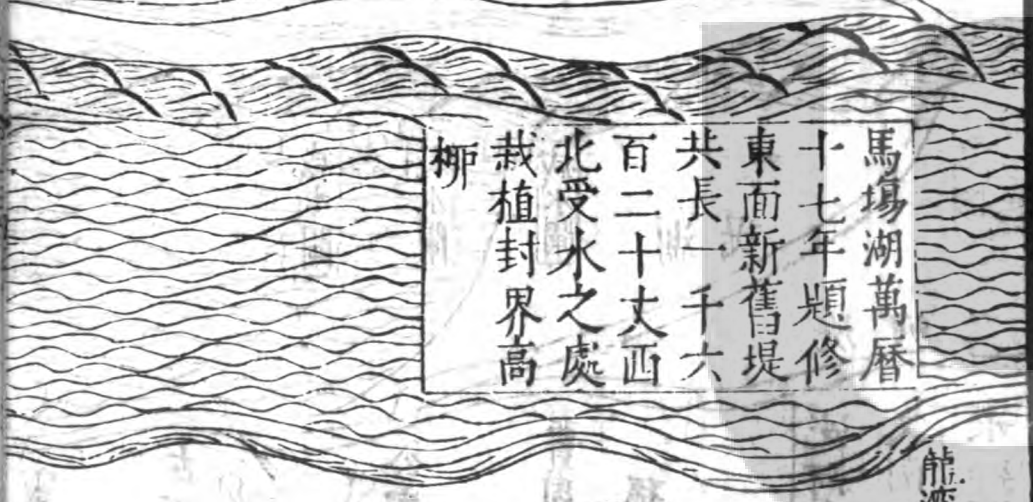 馬塲湖萬曆
十七年題修
東面新舊堤
共長一千六
百二十丈西
北受水之處
栽植封界高
柳
龍灣